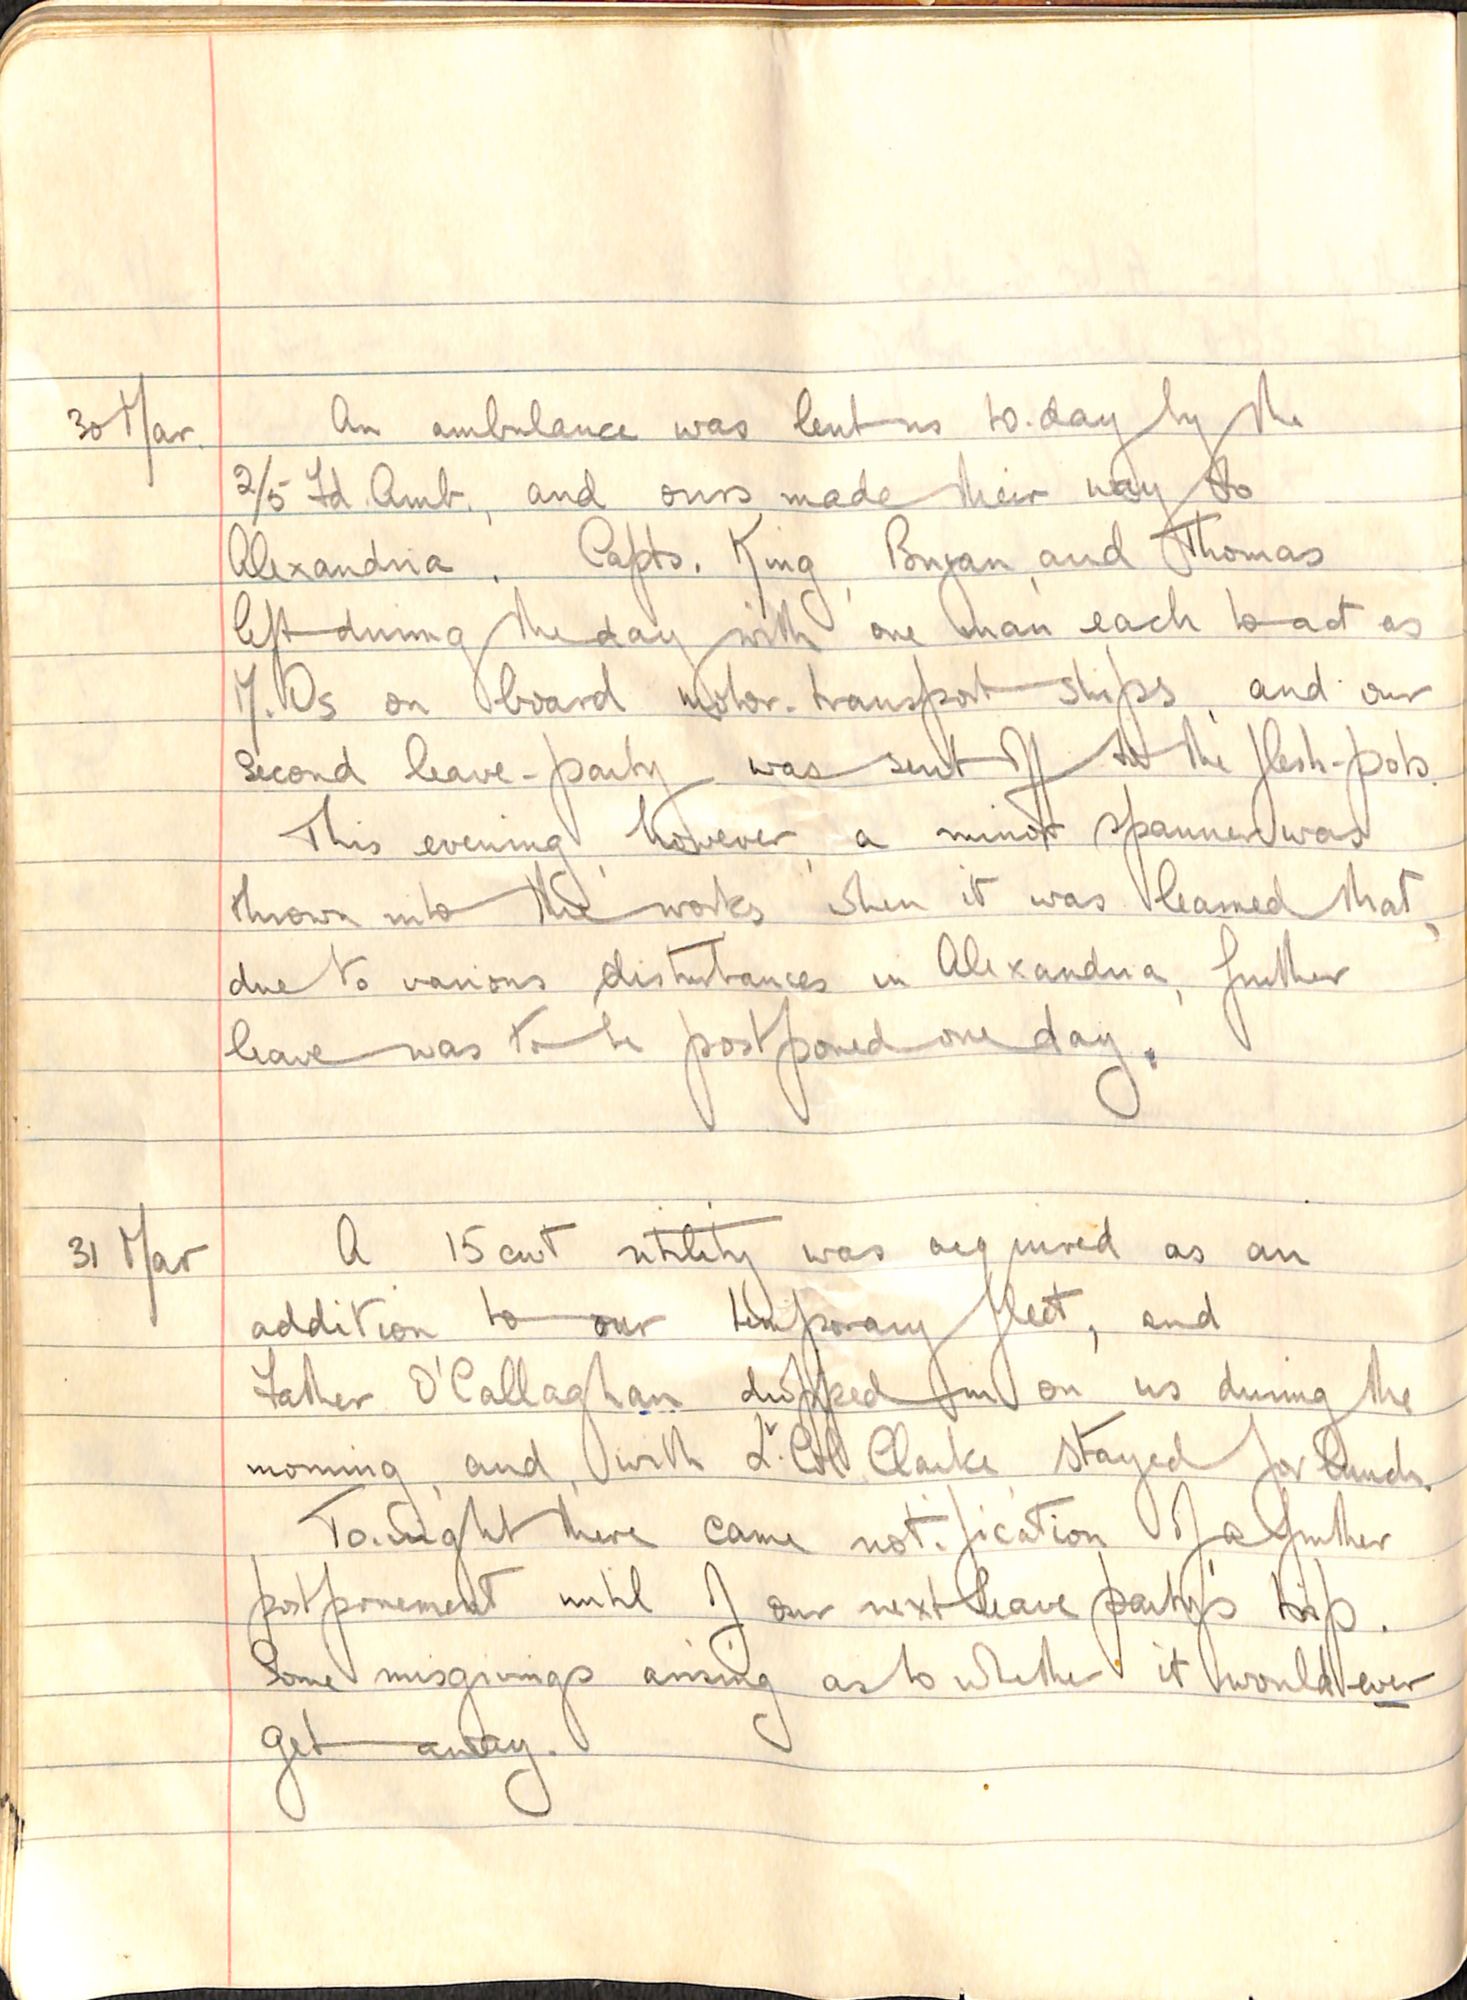 30 Mar. An ambulance was lent us to-day by the
2/5 Fd. Amb., and ours made their way to
Alexandria. Capts. King, Bryan, and Thomas
left during the day with one man each to act as
M.Os on board motor-transport ships, and our
second leave-party was sent off to the flesh-pots.
This evening, however, a minor spanner was
thrown into the works when it was learned that,
due to various disturbances in Alexandria, further
leave was to be postponed one day.
31 Mar A 15 cwt utility was acquired as an
addition to our temporary fleet, and
Father O'Callaghan dropped in on us during the
morning, and, with Lt. Col Clarke stayed for lunch.
To-night there came notification of a further
postponement until of our next leave party's trip.
Some misgivings arising as to whether it would ever
get away.